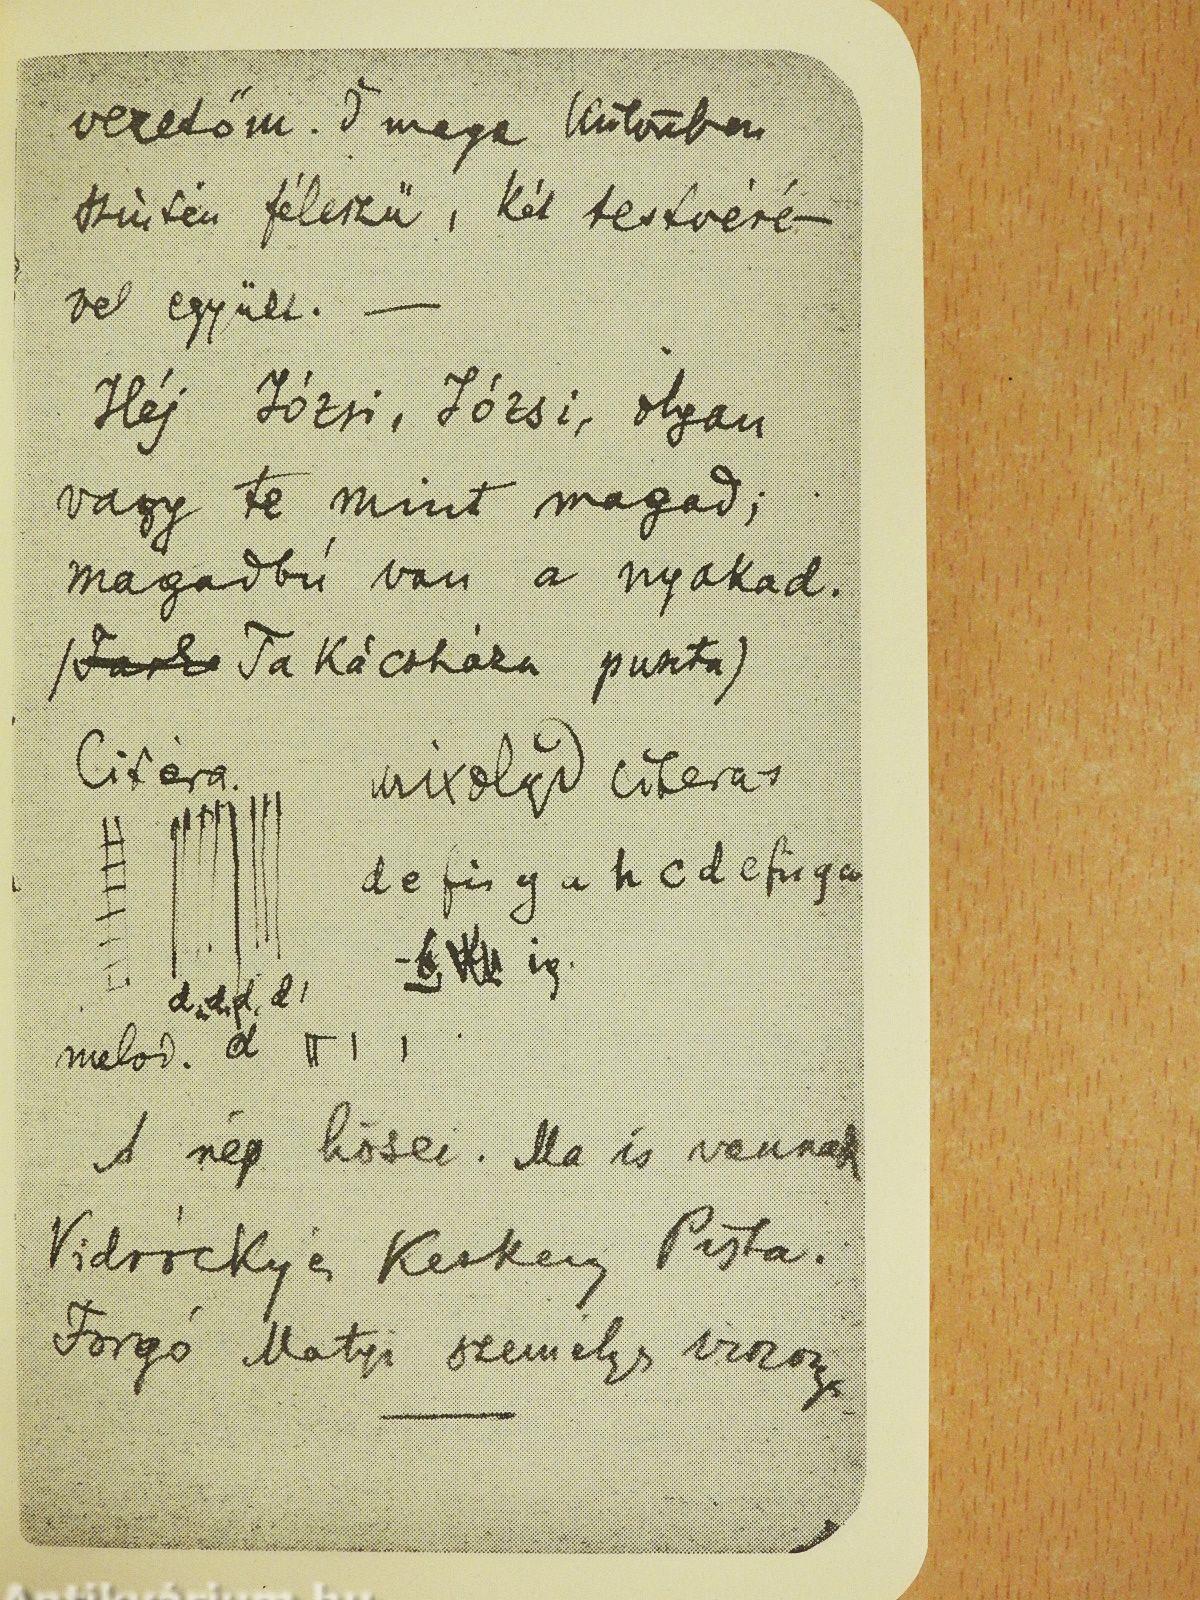 vezetőm. Ő maga különben
szintén féleszű, két testvéré-
vel együtt. —
Héj Józsi, Józsi, olyan
vagy te mint magad;
magadbú van a nyakad.
(Takácsháza puszta)
Citera. mixolyd citerás
d e fis g a h c d e fis g a
ig.
d, d, d, d'
melod. d
A nép hősei. Ma is vannak
Vidróczky és Keskeny Pista.
Forgó Matyi személyes viszony
Antikvárium.hu